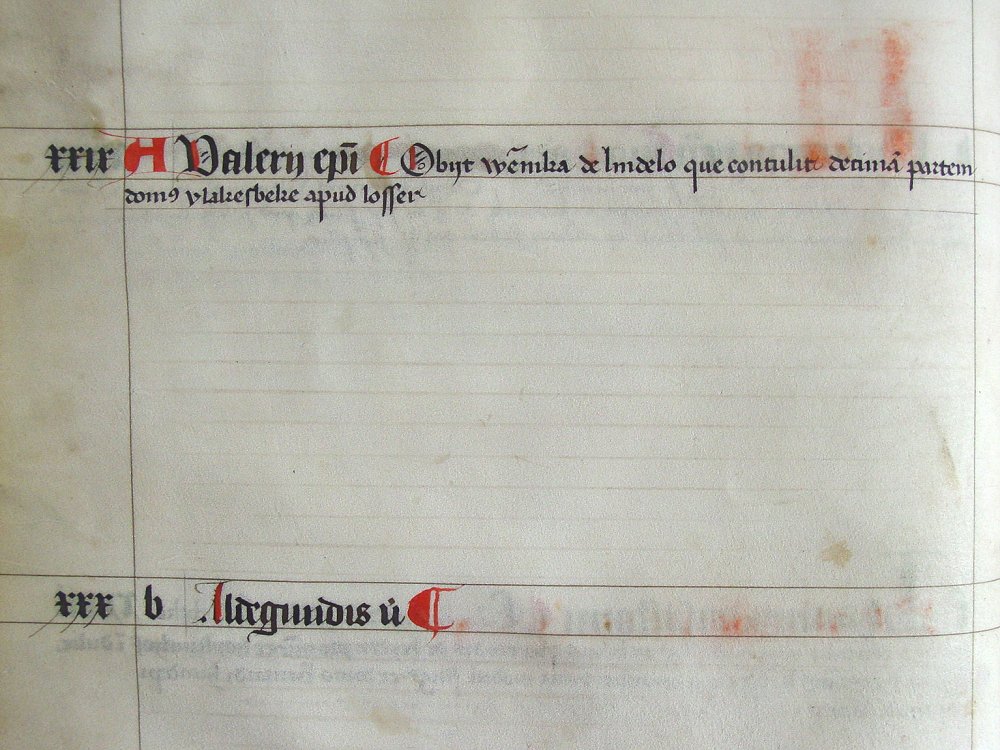 xxix A Valerij ep̄i ¶ Obijt wēmka de lindelo que contulit decimā partem
domꝰ vlakesbeke apud losser
xxx b Aldegundis v̄ ¶